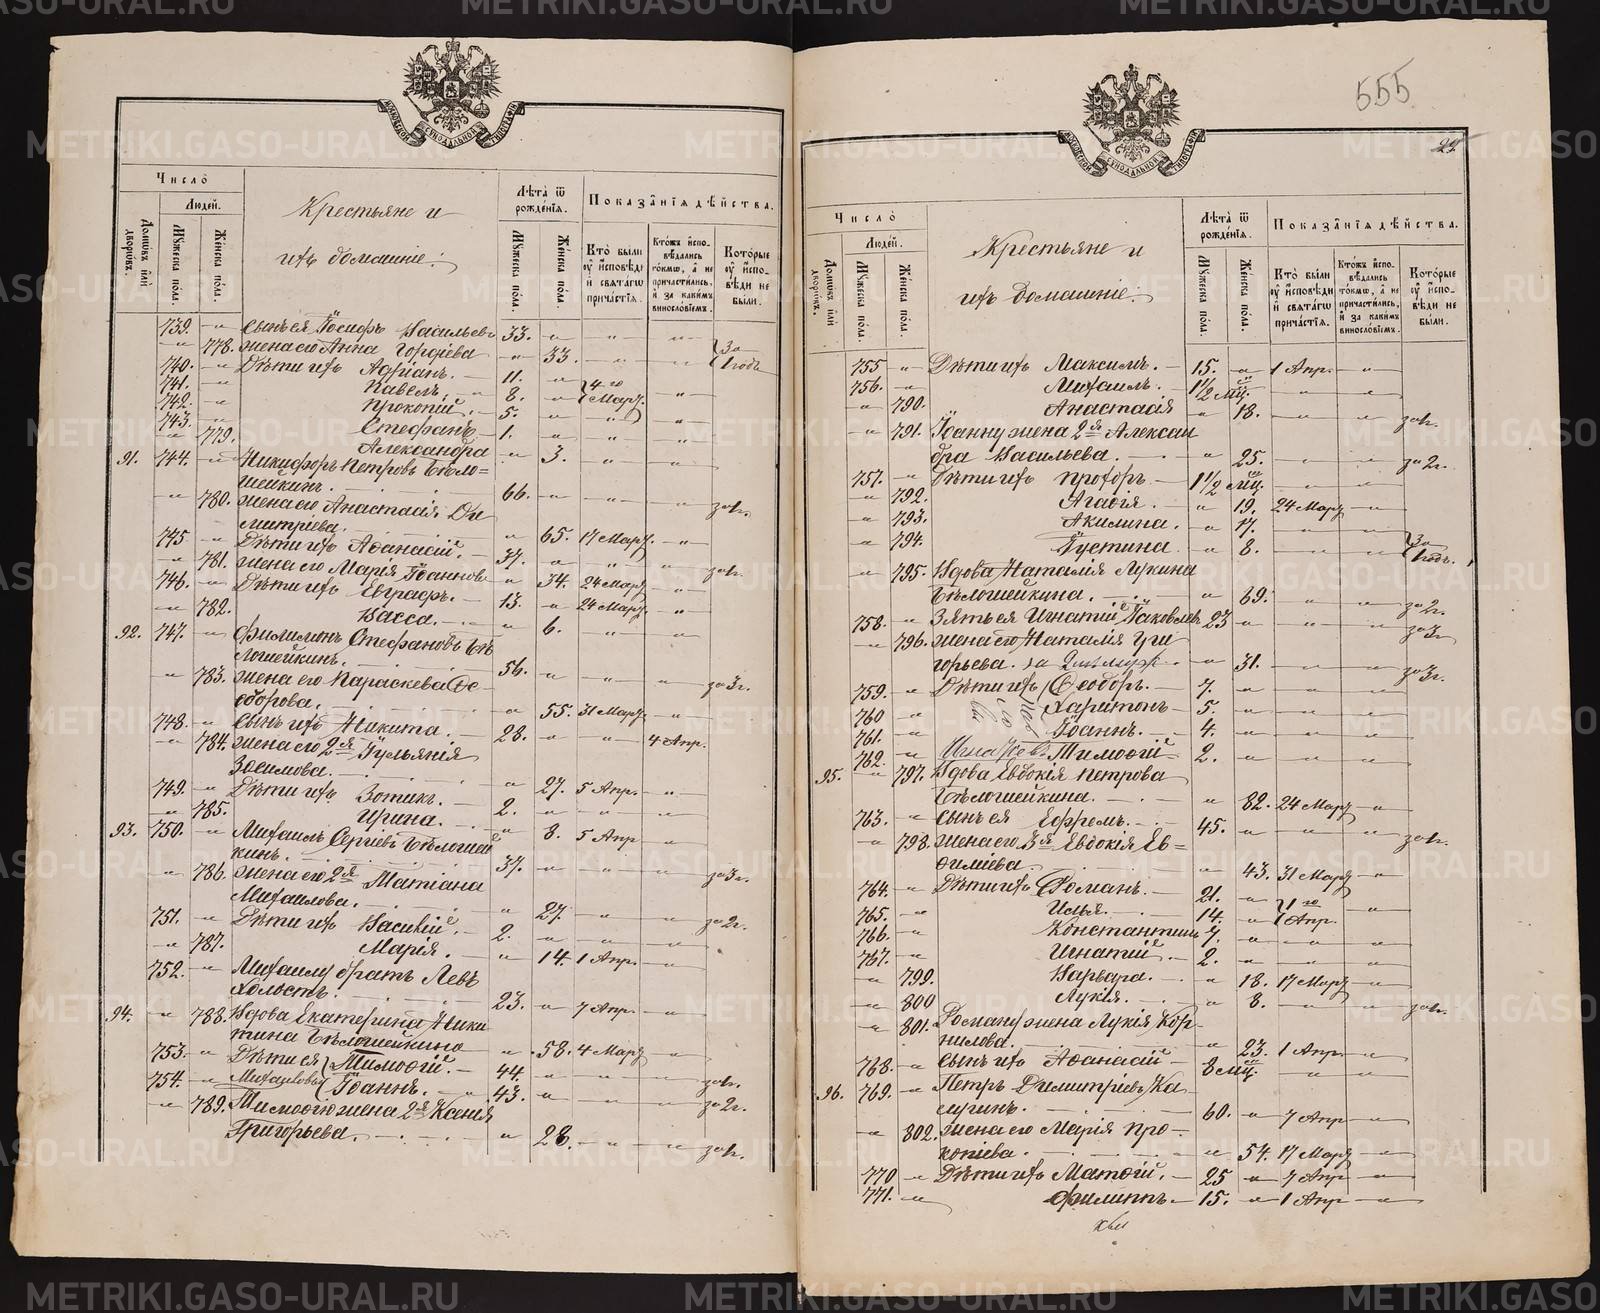 METRIKI.GASO-URAL.RU
555
25
МОСКОВСКОЙ СѴНОДАЛЬНОЙ ТИПОГРАФІИ
Число
Людей.
Домѡвъ или дворѡвъ.
Мꙋжеска пола.
Женска пола.
Крестьяне и
ихъ домашніе:
Лѣта ѿ рожденїѧ.
Мꙋжеска пола.
Женска пола.
Показанїѧ дѣйства.
Кто были оу исповѣди и свѧтагѡ причастїѧ.
Ктожъ исповѣдались токмѡ, а не причастились, и за какимъ винословїемъ.
Которые оу исповѣди не были.
739. -"- Сынъ ея Іосифъ Васильевъ 33. -"- -"- -"-
-"- 778. жена его Анна Гордіева -"- 33. -"- -"- за 1 годъ
740. -"- Дѣти ихъ Адріанъ. 11. -"-
741. -"- Павелъ. 8. -"- 4го Март. -"-
742. -"- Прокопій. 5. -"- -"-
743. -"- Стефанъ 1. -"- -"- -"-
-"- 779. Александра -"- 3. -"- -"-
91. 744. -"- Никифоръ Петровъ Бѣло=
шейкинъ. 66. -"- -"- -"- за 1г.
-"- 780. жена его Анастасія Ди
митріева. -"- 65. 17 Март. -"-
745 -"- Дѣти ихъ Аѳанасій. 37. -"- -"- -"- за 1г.
-"- 781. жена его Марія Іоаннова -"- 34. 24 Март -"-
746. -"- Дѣти ихъ Евграфъ. 13. -"- 24 Март. -"-
-"- 782. Васса. -"- 6. -"- -"-
92. 747. -"- Филимонъ Стефановъ Бѣ
лошейкинъ. 56. -"- -"- -"- за 3г.
-"- 783. жена его Параскева Ѳе
одорова. -"- 55. 31 Март -"-
748. -"- Сынъ ихъ Никита. 28. -"- -"- 4 Апр.
-"- 784. жена его 2я Іульянія
Зосимова. -"- 27. 5 Апр. -"-
749. -"- Дѣти ихъ Зотикъ. 2. -"- -"- -"-
-"- 785. Ирина. -"- 8. 5 Апр -"-
93. 750. -"- Михаилъ Сергіевъ Бѣлошей
кинъ. 37. -"- -"- -"- за 3г.
-"- 786. жена его 2я Татіана
Михаилова. -"- 27. -"- -"- за 2г.
751. -"- Дѣти ихъ Василій. 2. -"- -"- -"-
-"- 787. Марія. -"- 14. 1 Апр. -"-
752. -"- Михаилу братъ Левъ
холостъ. 23. -"- 7 Апр. -"-
94. -"- 788. Вдова Екатерина Ники
тина Бѣлошейкина -"- 58. 4 Март -"-
753. -"- Дѣти ея Тимоѳій. 44. -"- -"- -"- за 1г.
754. -"- Михаиловы Іоаннъ. 43. -"- -"- -"- за 2г.
-"- 789. Тимоѳію жена 2я Ксенія
Григорьева. -"- 28. -"- -"- за 1г.
Число
Людей.
Домѡвъ или дворѡвъ.
Мꙋжеска пола.
Женска пола.
Крестьяне и
ихъ домашніе:
Лѣта ѿ рожденїѧ.
Мꙋжеска пола.
Женска пола.
Показанїѧ дѣйства.
Кто были оу исповѣди и свѧтагѡ причастїѧ.
Ктожъ исповѣдались токмѡ, а не причастились, и за какимъ винословїемъ.
Которые оу исповѣди не были.
755 -"- Дѣти ихъ Максимъ. 15. -"- 1 Апр. -"-
756. -"- Михаилъ. 1½ мц. -"- -"-
-"- 790. Анастасія -"- 18. -"- -"- за 1г.
-"- 791. Іоанну жена 2я Алексан
дра Васильева. -"- 25. -"- -"- за 2г.
757. -"- Дѣти ихъ Прохоръ. 1½ мц. -"- -"-
-"- 792. Агафія. -"- 19. 24 Март -"-
-"- 793. Акилина. -"- 17. -"- -"- за 1 годъ.
-"- 794. Іустина -"- 8. -"- -"-
-"- 795. Вдова Наталія Лукина
Бѣлошейкина. -"- 69. -"- -"- за 2г.
758. -"- Зять ея Игнатій Іаковлевъ 23 -"- -"- -"- за 3г
-"- 796. жена его Наталія Гри
горьева. за 2мъ муж. -"- 31. -"- -"- за 3г.
759. -"- Дѣти ихъ Ѳеодоръ. 7. -"- -"- -"-
760 -"- Харитонъ 5. -"- -"- -"-
761. -"- Іоаннъ. 4. -"- -"- -"-
762. -"- Тимоѳій 2. -"- -"- -"-
95. -"- 797. Вдова Евдокія Петрова
Бѣлошейкина. -"- 82. 24 Март -"-
763. -"- Сынъ ея Ефремъ. 45. -"- -"- -"- за 1г.
-"- 798. жена его 3я Евдокія Ев=
ѳиміева. -"- 43. 31 Март -"-
764. -"- Дѣти ихъ Романъ. 21. -"-
765. -"- Илья. 14. -"- 1го Апр. -"-
766. -"- Константинъ 7. -"- -"- -"-
767. -"- Игнатій. 2. -"- -"- -"-
-"- 799. Варвара. -"- 18. 17 Март -"-
-"- 800 Лукія. -"- 8. -"- -"- за 1г.
-"- 801. Роману жена Лукія Кор-
нилова. -"- 23. 1 Апр. -"-
768. -"- Сынъ ихъ Аѳанасій 8 мц. -"- -"-
96. 769. -"- Петръ Димитріевъ Ка
лугинъ. 60. -"- 7 Апр -"-
-"- 802. жена его Марія Про-
копіева. -"- 54. 17 Март -"-
770 -"- Дѣти ихъ Матѳій. 25 -"- 7 Апр -"-
771. -"- Филиппъ. 15. -"- 1 Апр -"-